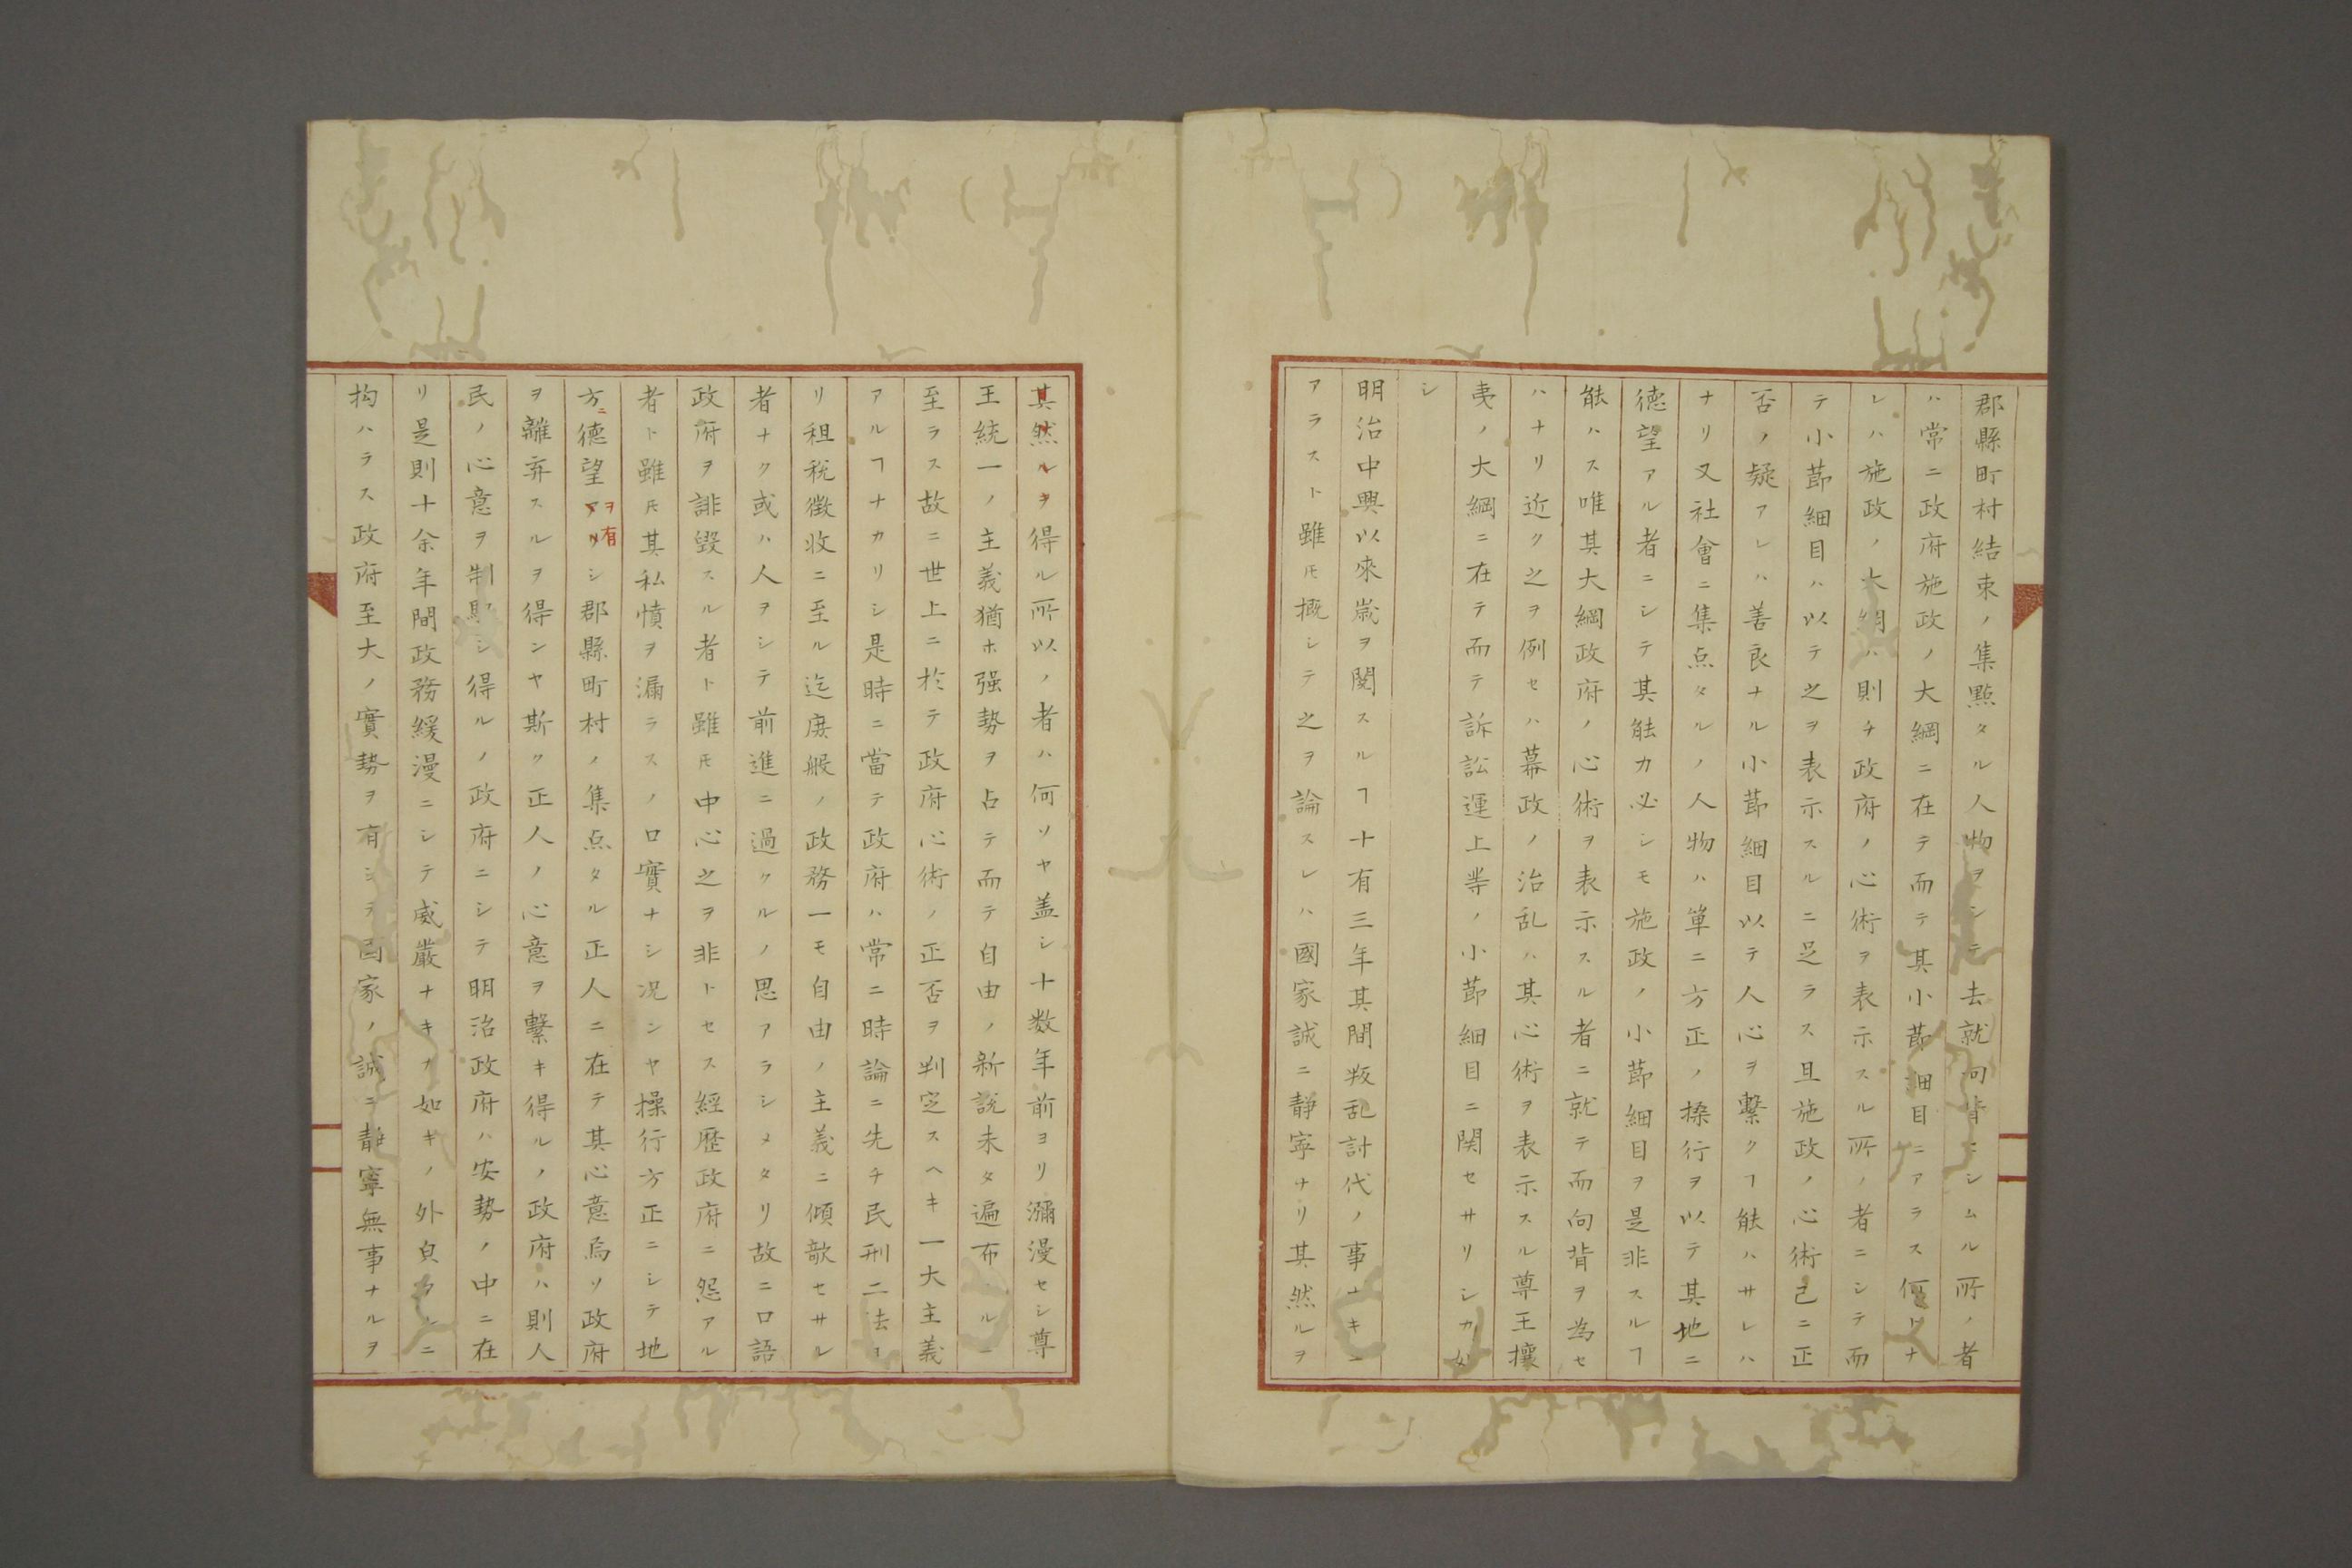 郡縣町村結束ノ集點タル人物ヲシテ去就向背セシムル所ノ者
ハ常ニ政府施政ノ大綱ニ在テ而テ其小莭細目ニアラス何トナ
レハ施政ノ大綱ハ則チ政府ノ心術ヲ表示スル所ノ者ニシテ而
テ小莭細目ハ以テ之ヲ表示スルニ足ラス且施政ノ心術已ニ正
否ノ疑アレハ善良ナル小莭細目以テ人心ヲ繫クヿ能ハサレハ
ナリ又社會ニ集点タルノ人物ハ単ニ方正ノ操行ヲ以テ其地ニ
徳望アル者ニシテ其能力必シモ施政ノ小莭細目ヲ是非スルヿ
能ハス唯其大綱政府ノ心術ヲ表示スル者ニ就テ而向背ヲ為セ
ハナリ近ク之ヲ例セハ幕政ノ治乱ハ其心術ヲ表示スル尊王攘
夷ノ大綱ニ在テ而テ訴訟運上等ノ小莭細目ニ関セサリシカ如
シ
明治中興以來歳ヲ閲スルヿ十有三年其間叛乱討伐ノ事ナキニ
アラスト雖𪜈概シテ之ヲ論スレハ國家誠ニ静寧ナリ其然ルヲ
其然ルヲ得ル所以ノ者ハ何ソヤ盖シ十数年前ヨリ瀰漫セシ尊
王統一ノ主義猶ホ强勢ヲ占テ而テ自由ノ新說未タ遍布スルニ
至ラス故ニ世上ニ於テ政府心術ノ正否ヲ判定スヘキ一大主義
アルヿナカリシ是時ニ當テ政府ハ常ニ時論ニ先チ民刑二法ヨ
リ租税徵收ニ至ル迄庻般ノ政務一モ自由ノ主義ニ傾欹セサル
者ナク或ハ人ヲシテ前進ニ過クルノ思アラシメタリ故ニ口語
政府ヲ誹毀スル者ト雖𪜈中心之ヲ非トセス經歷政府ニ怨アル
者ト雖𪜈其私憤ヲ漏ラスノ口實ナシ況ンヤ操行方正ニシテ地
方ニ德望ヲ有アリシ郡縣町村ノ集点タル正人ニ在テ其心意烏ソ政府
ヲ離弃スルヲ得ンヤ斯ク正人ノ心意ヲ繫キ得ルノ政府ハ則人
民ノ心意ヲ制馭シ得ルノ政府ニシテ明治政府ハ安勢ノ中ニ在
リ是則十余年間政務緩漫ニシテ威嚴ナキカ如キノ外皃アルニ
拘ハラス政府至大ノ實勢ヲ有シテ国家ノ誠ニ静寧無事ナルヲ